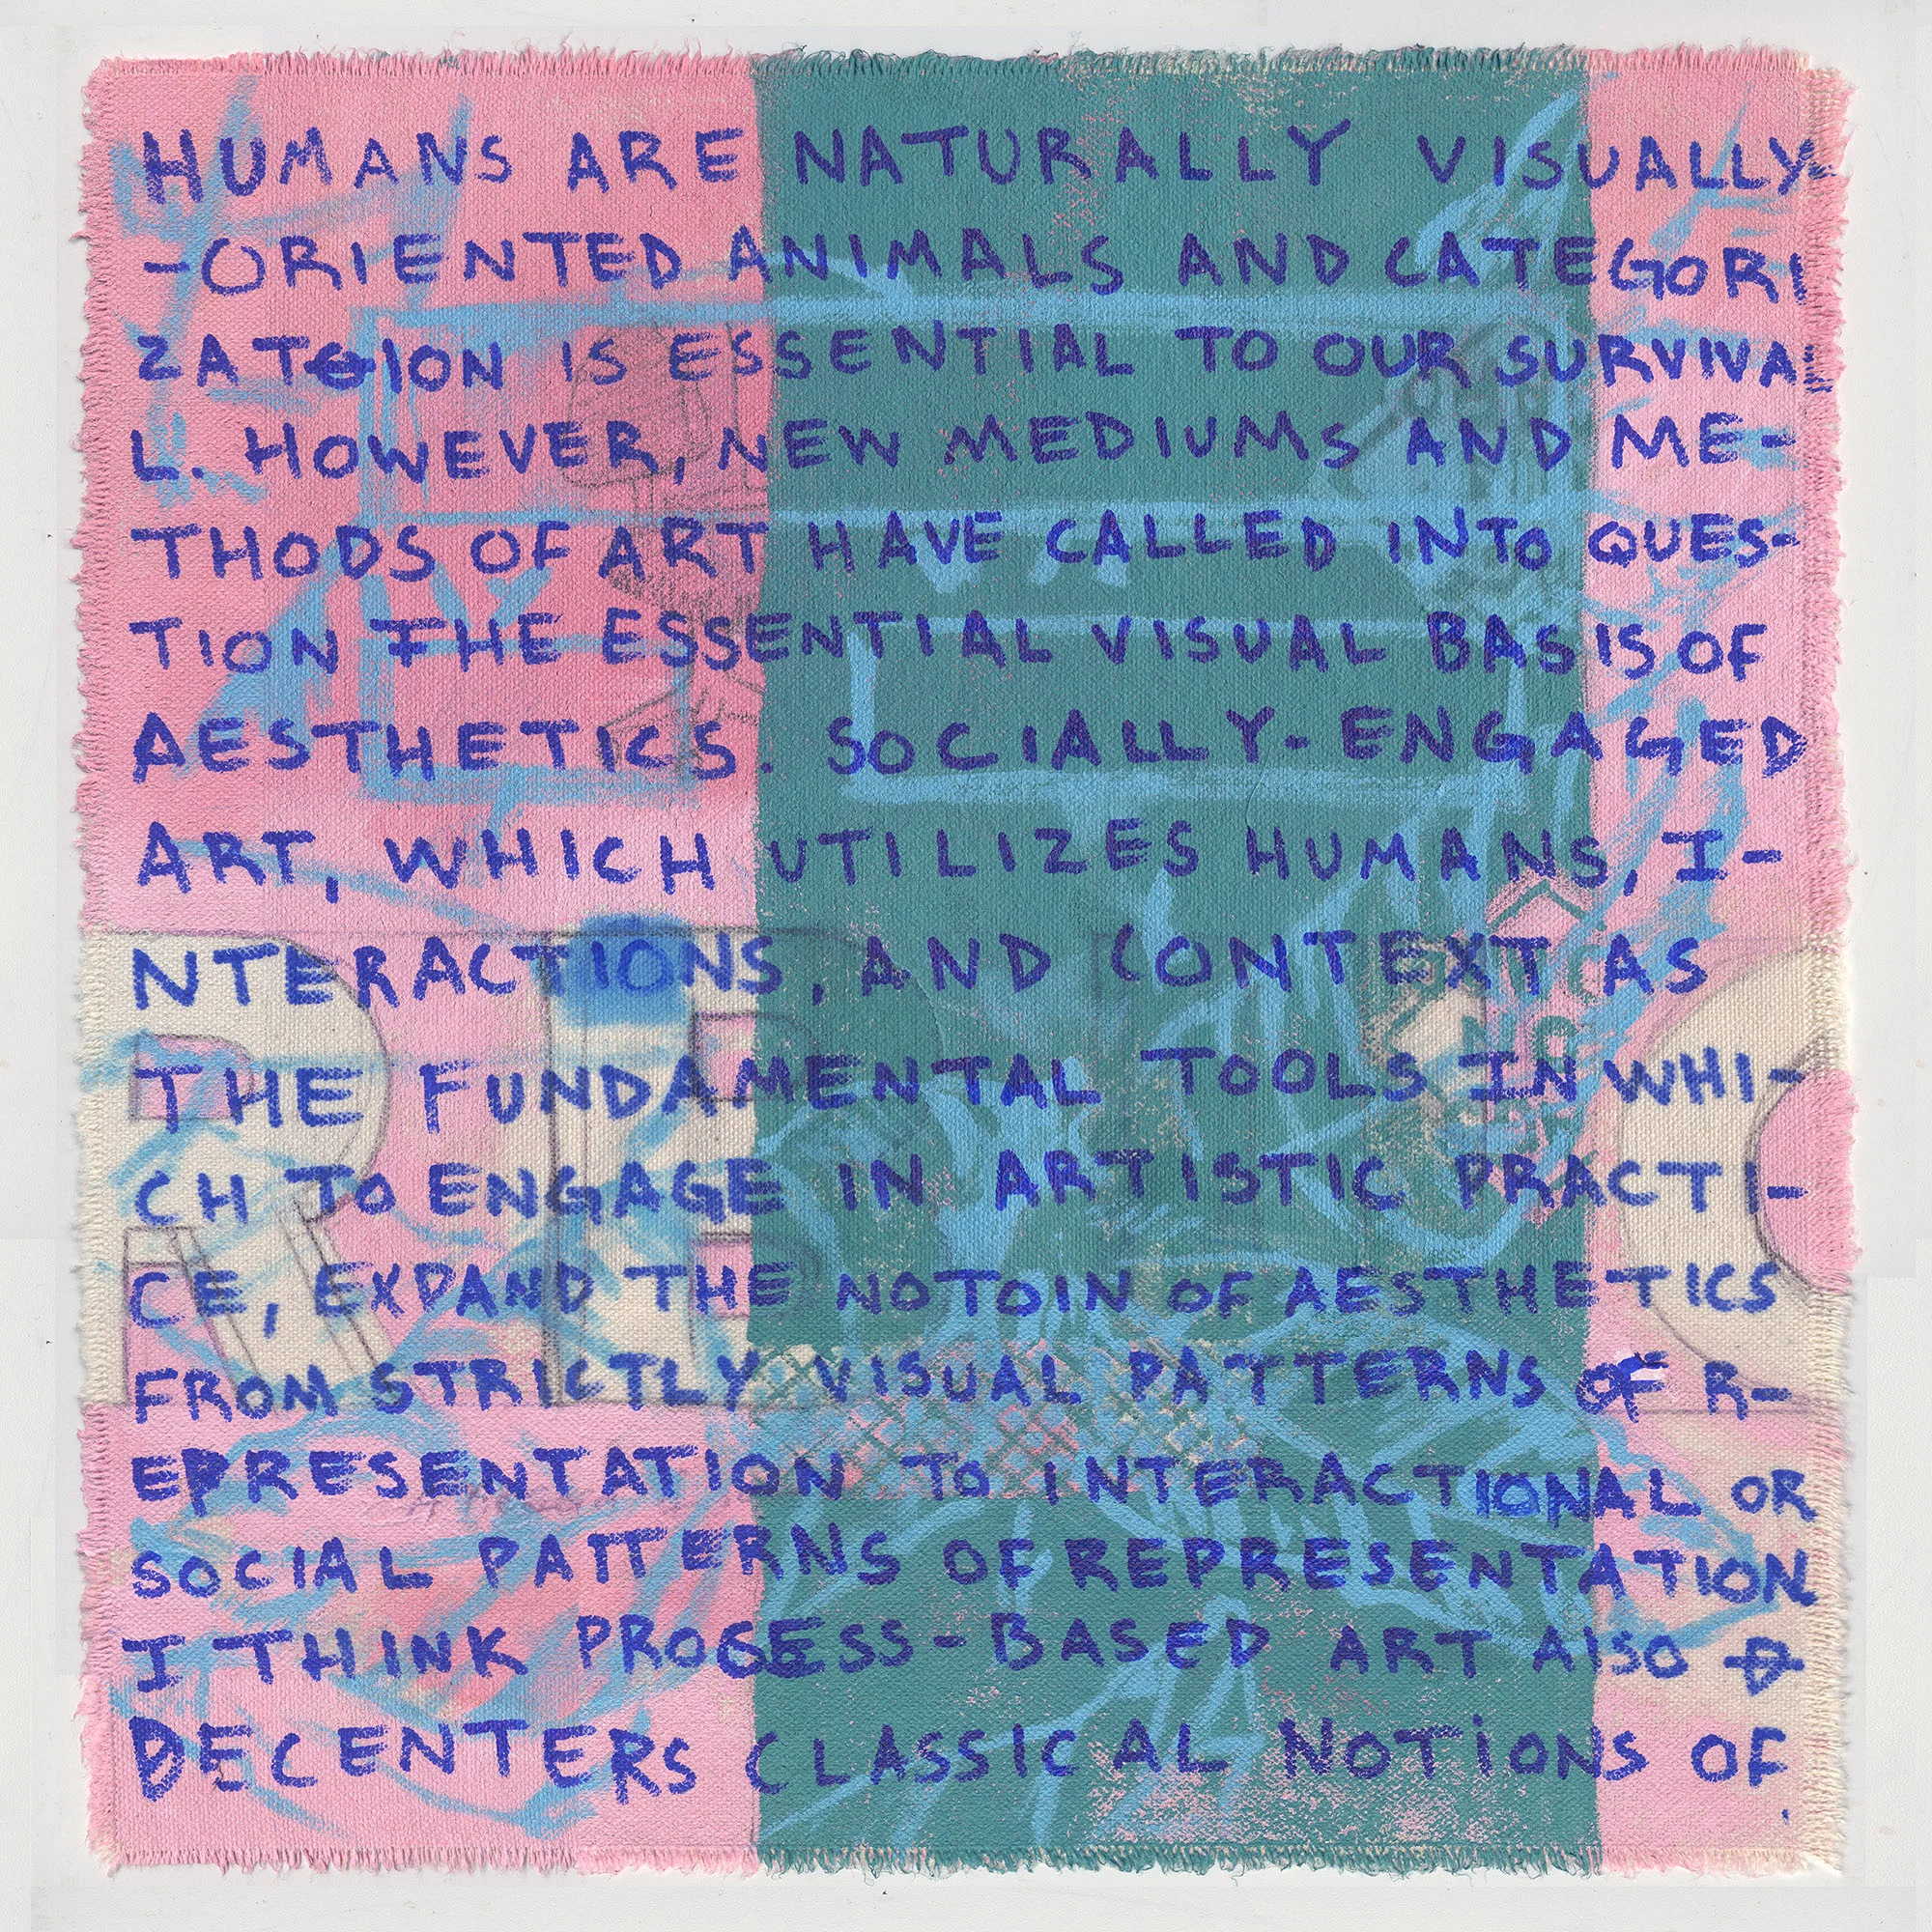 HUMANS ARE NATURALLY VISUALLY-
-ORIENTED ANIMALS AND CATEGORI
ZATION IS ESSENTIAL TO OUR SURVIVA
L. HOWEVER, NEW MEDIUMS AND ME-
THODS OF ART HAVE CALLED INTO QUES-
TION THE ESSENTIAL VISUAL BASIS OF
AESTHETICS. SOCIALLY-ENGAGED
ART, WHICH UTILIZES HUMANS, I-
NTERACTIONS, AND CONTEXT AS
THE FUNDAMENTAL TOOLS IN WHI-
CH TO ENGAGE IN ARTISTIC PRACTI-
CE, EXPAND THE NOTOIN OF AESTHETICS
FROM STRICTLY VISUAL PATTERNS OF R-
EPRESENTATION TO INTERACTIONAL OR
SOCIAL PATTERNS OF REPRESENTATION.
I THINK PROCESS-BASED ART AlSO
DECENTERS CLASSICAL NOTiONS OF